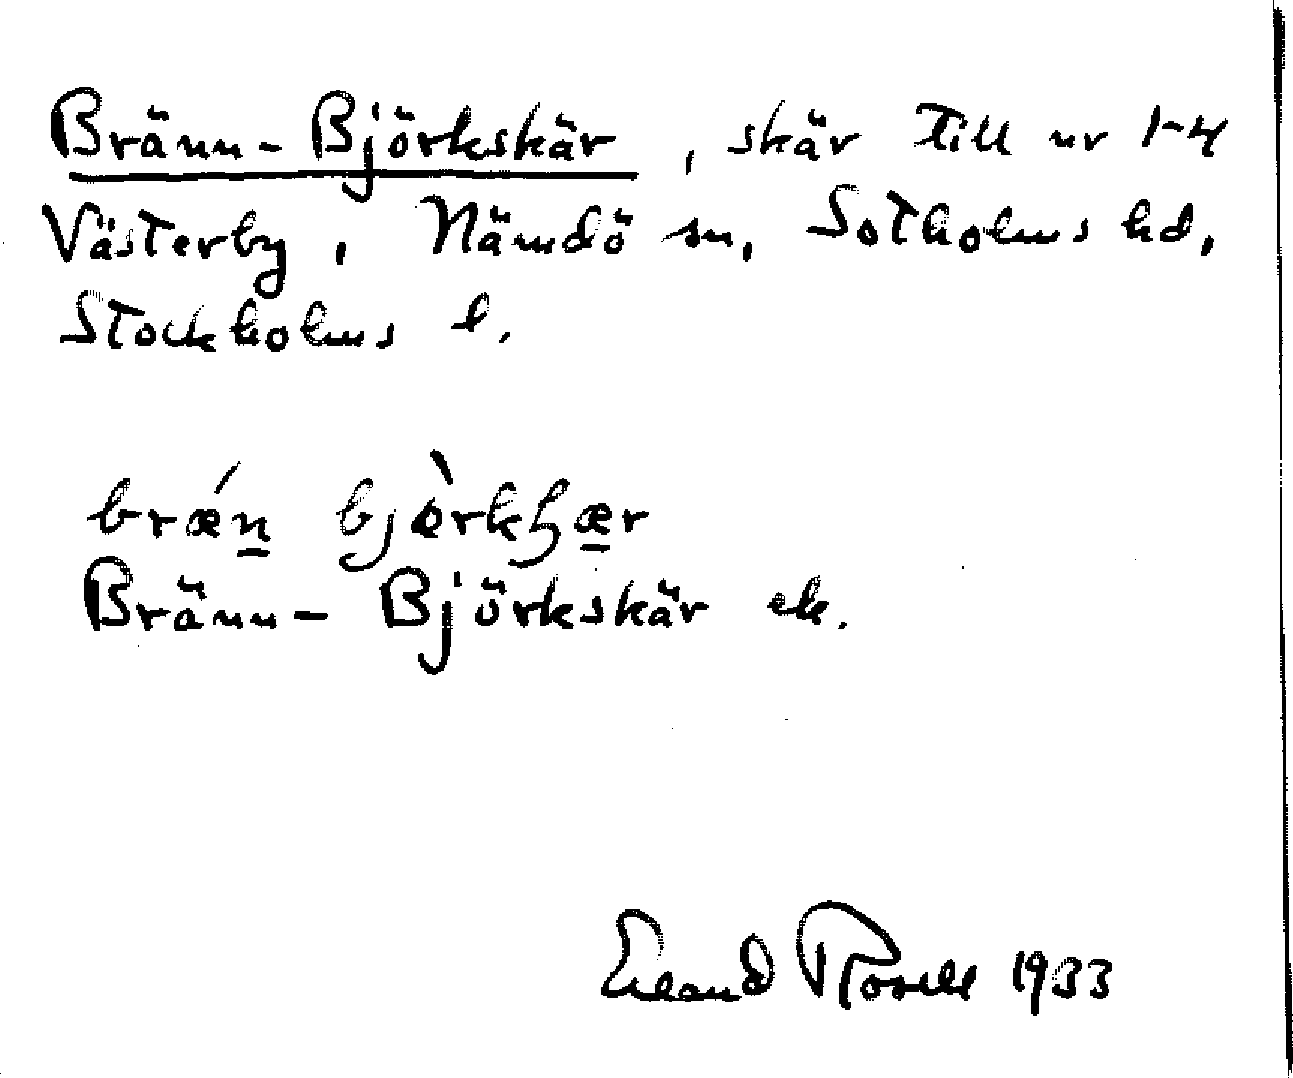 Bränn-Björkskär, skär till nr 1-4
Västerby, Nämdö sn, Sotholms hd,
Stockholms l.
brǽn̲ bjὸrkʂæ̲r
Bränn-Björkskär ek.
Erland Rosell 1933